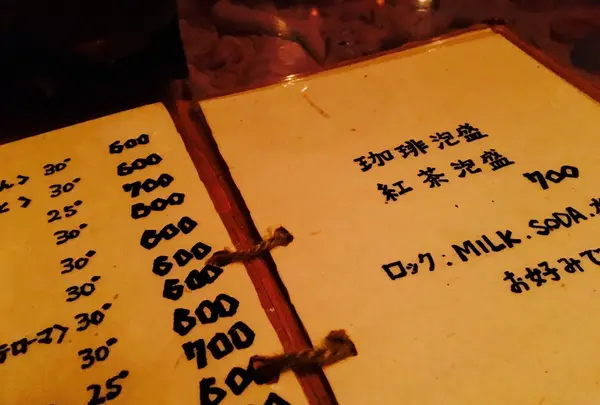 ん> 30° 600
> 30° 600
25° 700
30° 600
30° 600
30° 600
テローマ> 30° 600
30° 600
25° 700
600
珈琲泡盛
紅茶泡盛 700
ロック.MILK.SODA.
お好みで